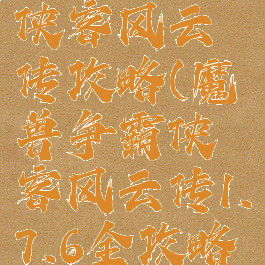 侠客风云
传攻略(魔
兽争霸侠
客风云传1.
7.6全攻略